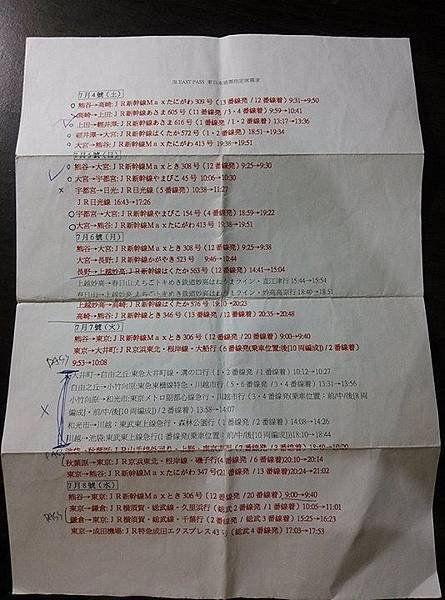 JR EAST PASS 東日本通票指定席需求
7月4號（土）
熊谷→高崎:ＪＲ新幹線Ｍａｘたにがわ 309 号 (13 番線発 / 12 番線着) 9:31→9:50
高崎→上田:ＪＲ新幹線あさま 605 号 (11 番線発 / 3・4 番線着) 9:59→10:41
上田→軽井澤:ＪＲ新幹線あさま 616 号 (1 番線発 / 1・2 番線着) 13:17→13:36
軽井澤→大宮:ＪＲ新幹線はくたか 572 号 (1・2 番線発) 18:51→19:34
大宮→熊谷:ＪＲ新幹線Ｍａｘたにがわ 413 号 19:38→19:51
7月5號（日）
熊谷→大宮:ＪＲ新幹線Ｍａｘとき 308 号 (12 番線発) 9:25→9:30
大宮→宇都宮:ＪＲ新幹線やまびこ 45 号 10:06→10:30
宇都宮→日光:ＪＲ日光線 (5 番線発) 10:38→11:27
ＪＲ日光線 16:43→17:26
宇都宮→大宮:ＪＲ新幹線やまびこ 154 号 (4 番線発) 18:59→19:22
大宮→熊谷:ＪＲ新幹線Ｍａｘたにがわ 413 号 19:38→19:51
7月6號（月）
熊谷→大宮:ＪＲ新幹線Ｍａｘとき 308 号 (12 番線発) 9:25→9:38
大宮→長野:ＪＲ新幹線かがやき 523 号 9:46→10:44
長野→上越妙高:ＪＲ新幹線はくたか 563 号 (12 番線発) 14:41→15:04
上越妙高→春日山:えちごトキめき鉄道妙高はねうまライン・直江津行 15:44→15:54
春日山→上越妙高:えちごトキめき鉄道妙高はねうまライン・妙高高原行 18:40→18:51
上越妙高→高崎:ＪＲ新幹線はくたか 576 号 19:10→20:23
高崎→熊谷:ＪＲ新幹線Ｍａｘとき 346 号 (13 番線発 / 12 番線着) 20:35→20:48
7月7號（火）
熊谷→東京:ＪＲ新幹線Ｍａｘとき 306 号 (12 番線発 / 20 番線着) 9:00→9:40
東京→大井町:ＪＲ京浜東北・根岸線・大船行 (6 番線発(乗車位置:後[10 両編成]) / 2 番線着)
9:53→10:08
PASS
大井町→自由之丘:東急大井町線・溝の口行 (1・2 番線発 / 1 番線着) 10:12→10:27
自由之丘→小竹向原:東急東横線特急・川越市行 (5・6 番線発 / 3・4 番線着) 13:31→13:56
小竹向原→和光市:東京メトロ副都心線急行・川越市行 (3・4 番線発(乗車位置：前/中/後[8 両
編成]・前/中/後[10 両編成]) / 2 番線着) 13:58→14:07
和光市→川越：東武東上線急行・森林公園行 (1 番線発 / 2 番線着) 14:08→14:26
川越→池袋:東武東上線急行(1 番線発(乗車位置：前/中/後[10 両編成])) 18:10→18:44
秋葉原→東京:ＪＲ京浜東北・根岸線・磯子行(4 番線発 / 6 番線着)20:10→20:14
東京→熊谷:ＪＲ新幹線Ｍａｘたにがわ 347 号(21 番線発 / 13 番線着)20:24→21:02
7月8號（水）
熊谷→東京:ＪＲ新幹線Ｍａｘとき 306 号 (12 番線発 / 20 番線着) 9:00→9:40
PASS
東京→鎌倉:ＪＲ横須賀・総武線・久里浜行 (総武 2 番線発 / 1 番線着) 10:05→11:01
鎌倉→東京:ＪＲ横須賀・総武線・千葉行 (2 番線発 / 総武 3 番線着) 15:25→16:23
東京→成田機場:ＪＲ特急成田エクスプレス 43 号 (総武 4 番線発) 17:03→17:53